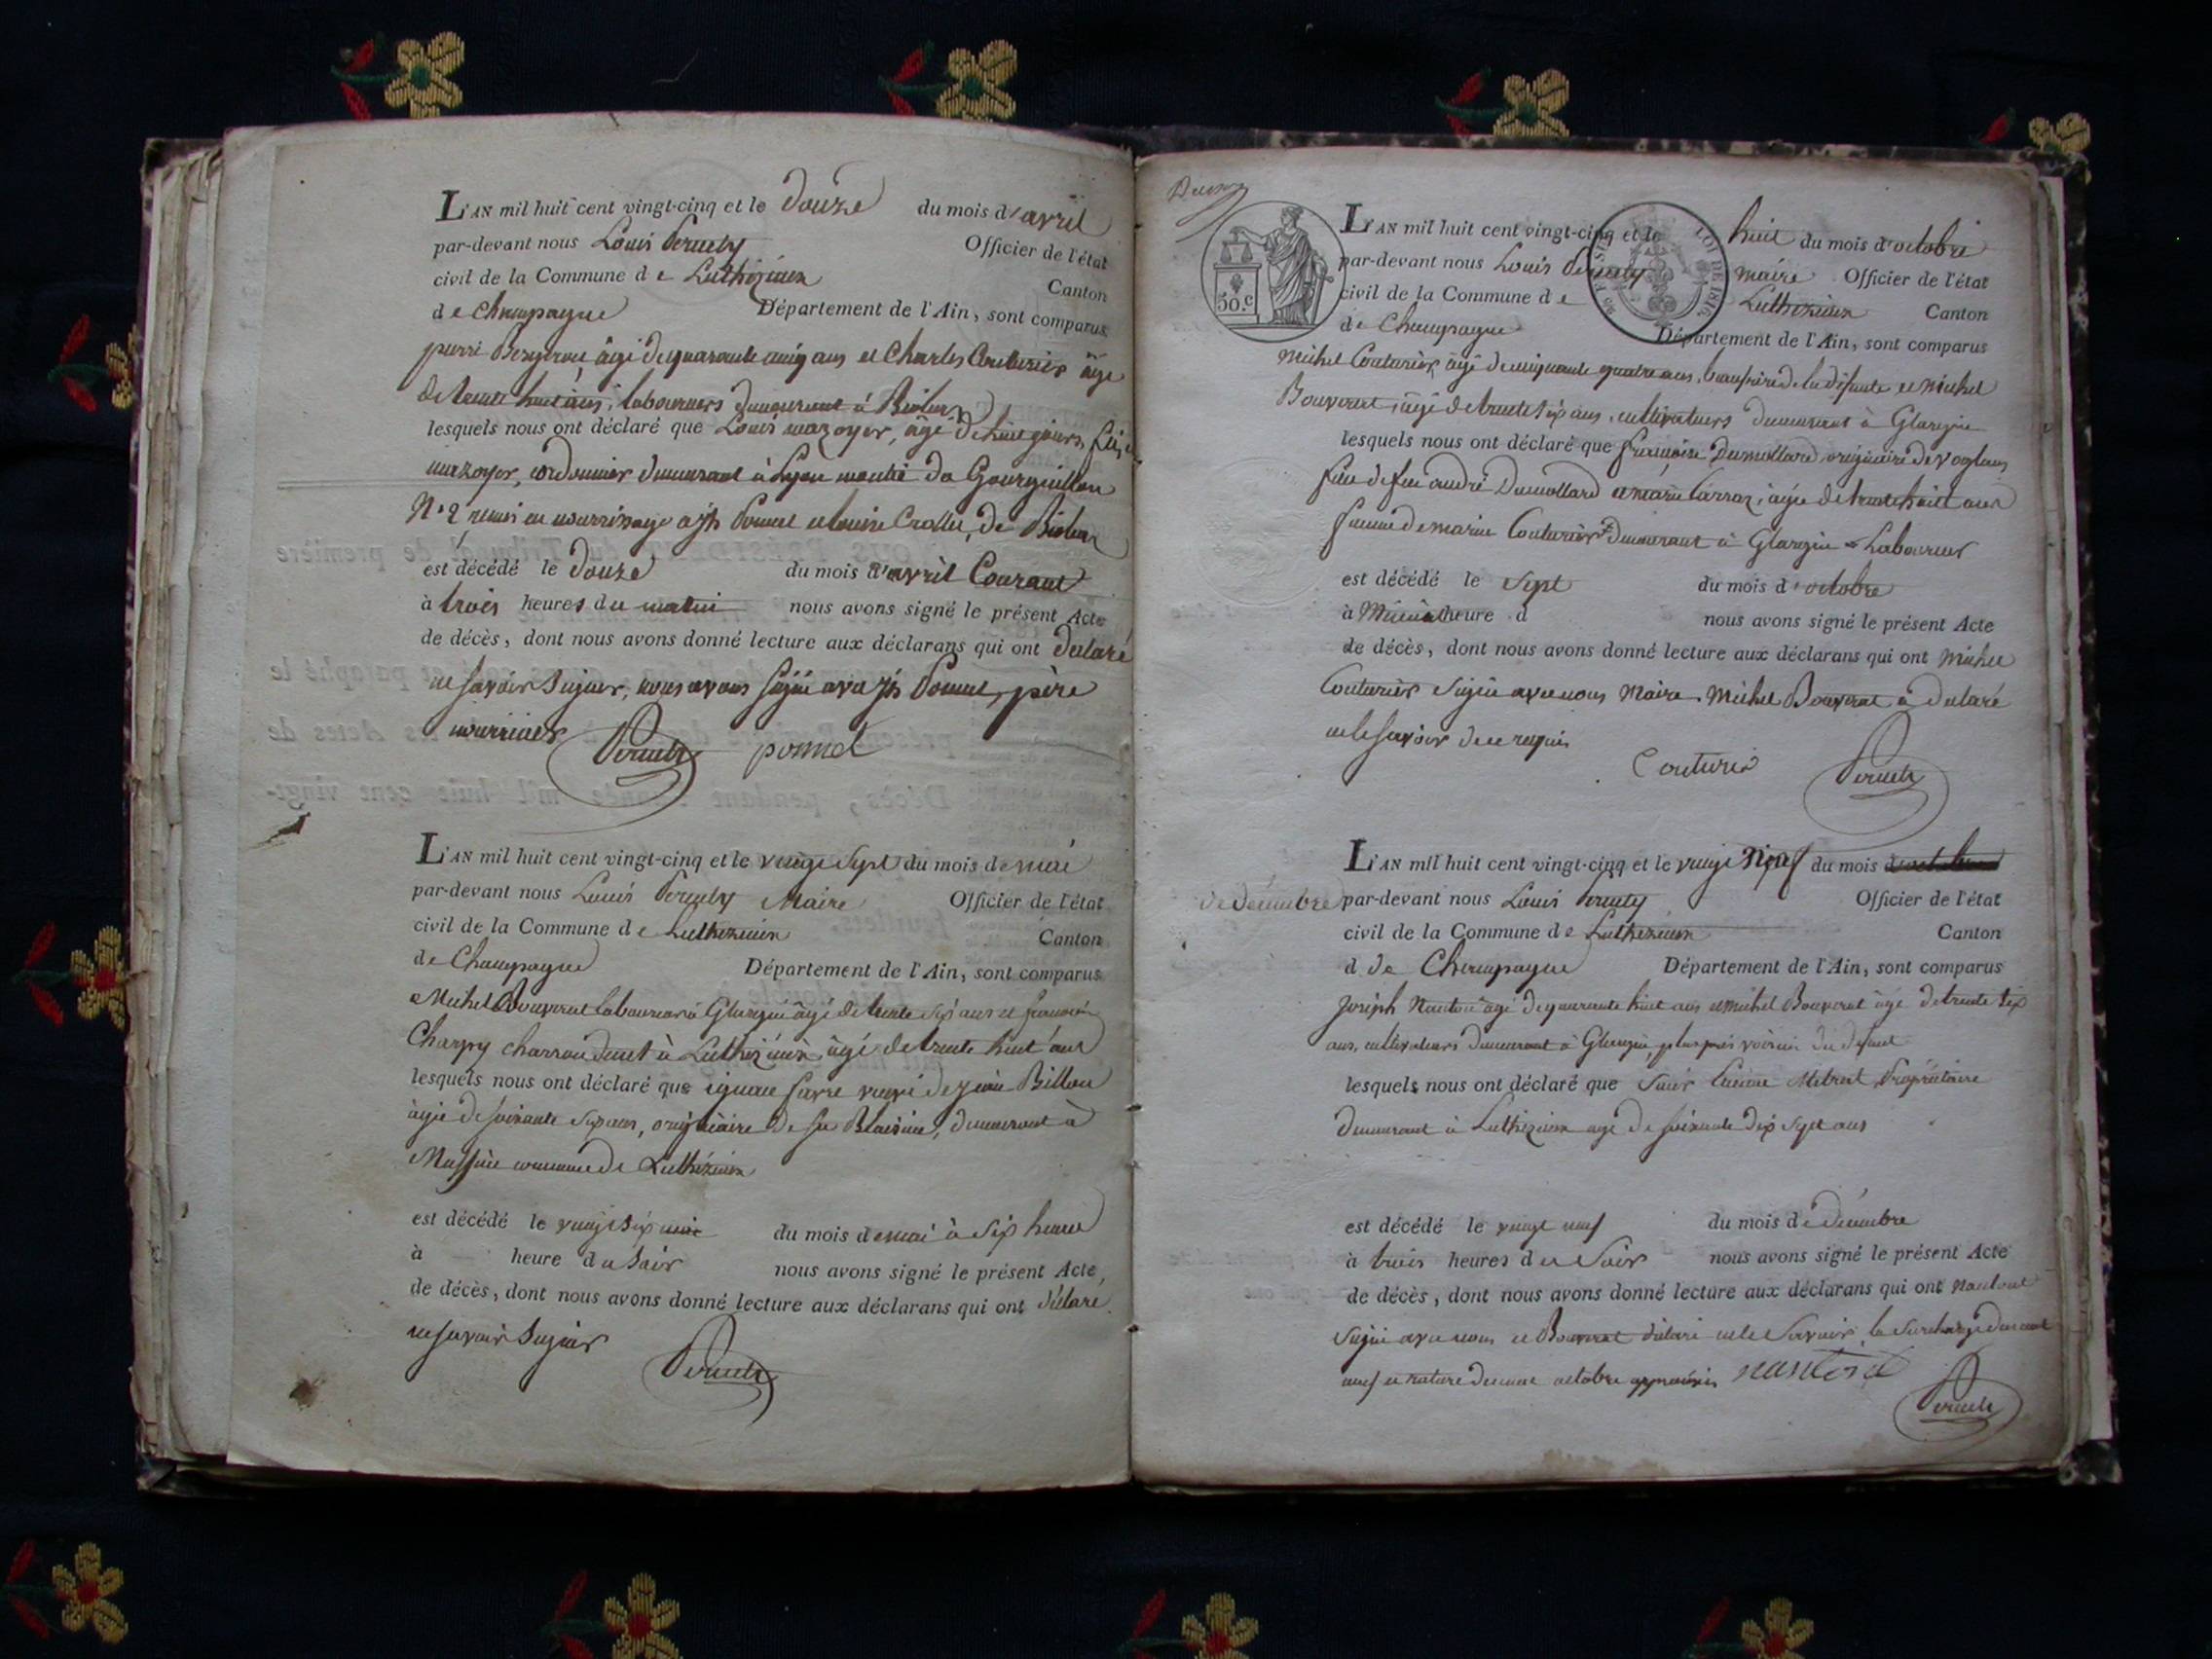 L'AN mil huit cent vingt-cinq et le douze du mois d'avril
par-devant nous Louis Peruchy Officier de l'état
civil de la Commune de Luthézieux Canton
de Champagne Département de l'Ain, sont comparus
pierre âgé de quarante cinq ans et Charles Couturier âgé
de trente huit ans, laboureurs demeurant à
lesquels nous ont déclaré que Louis mazoyer, âgé de huit jours, fils
mazoyer, cordonnier demeurant à Lyon montée du Gourguillon
N.° 2 remis en nourrissage à jh Ponnet et Louise de
est décédé le douze du mois d'avril Courant
à trois heures du matin nous avons signé le présent Acte
de décès, dont nous avons donné lecture aux déclarans qui ont déclaré
ne savoir signer, nous avons signé avec jh Ponnet, père
nourricier Peruchy ponnet
L'AN mil huit cent vingt-cinq et le vingt Sept du mois de mai
par-devant nous Louis Peruchy Maire Officier de l'état
civil de la Commune de Luthézieux Canton
de Champagne Département de l'Ain, sont comparus
Michel Bouvrat laboureur à Glargin âgé de trente six ans et françois
Charpy charron demt à Luthézieux, âgé de trente huit ans
lesquels nous ont déclaré que favre Billon
âgée de soixante ans, originaire de demeurant à
Massin commune de Luthézieux
est décédé le vingt six du mois de mai à Six heure
à heure du Soir nous avons signé le présent Acte,
de décès, dont nous avons donné lecture aux déclarans qui ont déclaré
ne savoir Signer Peruchy
50.c LOI DE 1816.
L'AN mil huit cent vingt-cinq et le huit du mois d'octobre
par-devant nous Louis Peruchy maire Officier de l'état
civil de la Commune de Luthézieux Canton
de Champagne Département de l'Ain, sont comparus
Michel Couturier, âgé de cinquante quatre ans, beaufrère de la défunte et Michel
Bouvrat, âgé de trente six ans, cultivateurs demeurant à Glargin
lesquels nous ont déclaré que françoise Dumollard, originaire de
fille de feu andré Dumollard et marie Carraz, âgée de trente huit ans
femme de Couturier demeurant à Glargin Laboureur
est décédé le Sept du mois d'octobre
à Minuit heure d nous avons signé le présent Acte
de décès, dont nous avons donné lecture aux déclarans qui ont Michel
Couturier Signé avec nous Maire, Michel Bouvrat a déclaré
ne le savoir de ce requis
Couturier Peruchy
L'AN mil huit cent vingt-cinq et le vingt Neuf du mois d'octobre
de décembre par-devant nous Louis Peruchy Officier de l'état
civil de la Commune de Luthézieux Canton
d de Champagne Département de l'Ain, sont comparus
Joseph Nantoit âgé de quarante huit ans et Michel Bouvrat âgé de trente six
ans, cultivateurs demeurant à Glargin, plus près voisins du défunt
lesquels nous ont déclaré que Sieur Métral, Propriétaire
demeurant à Luthézieux âgé de soixante dix Sept ans
est décédé le vingt neuf du mois de décembre
à trois heures du Soir nous avons signé le présent Acte
de décès, dont nous avons donné lecture aux déclarans qui ont Nantoit
Signé avec nous et Bouvrat déclaré ne le Savoir, la Surcharge du mot
neuf et rature du mot octobre approuvées Nantoit
Peruchy